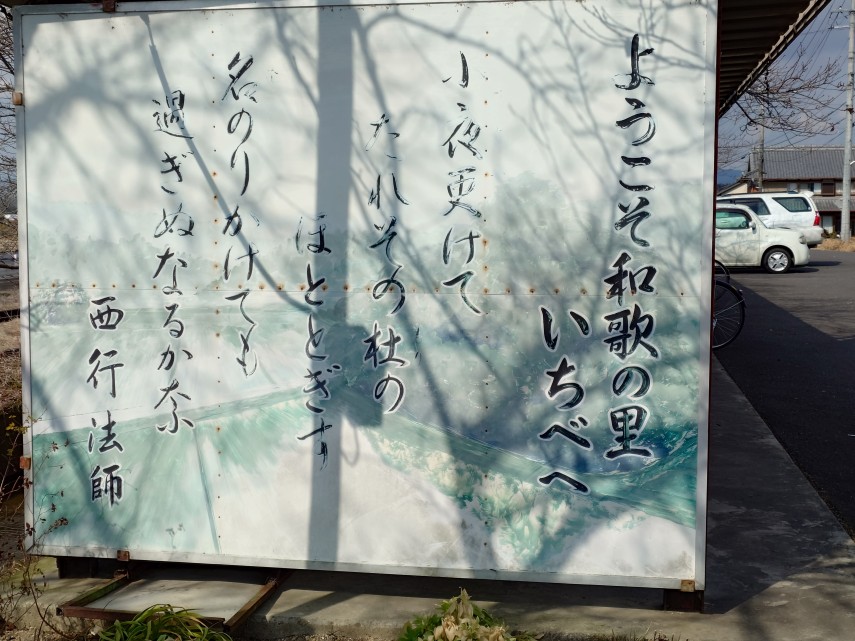 ようこそ和歌の里
いちべへ
小夜更けて
たれその杜の
ほととぎす
名のりかけても
過ぎぬなるか奈
西行法師